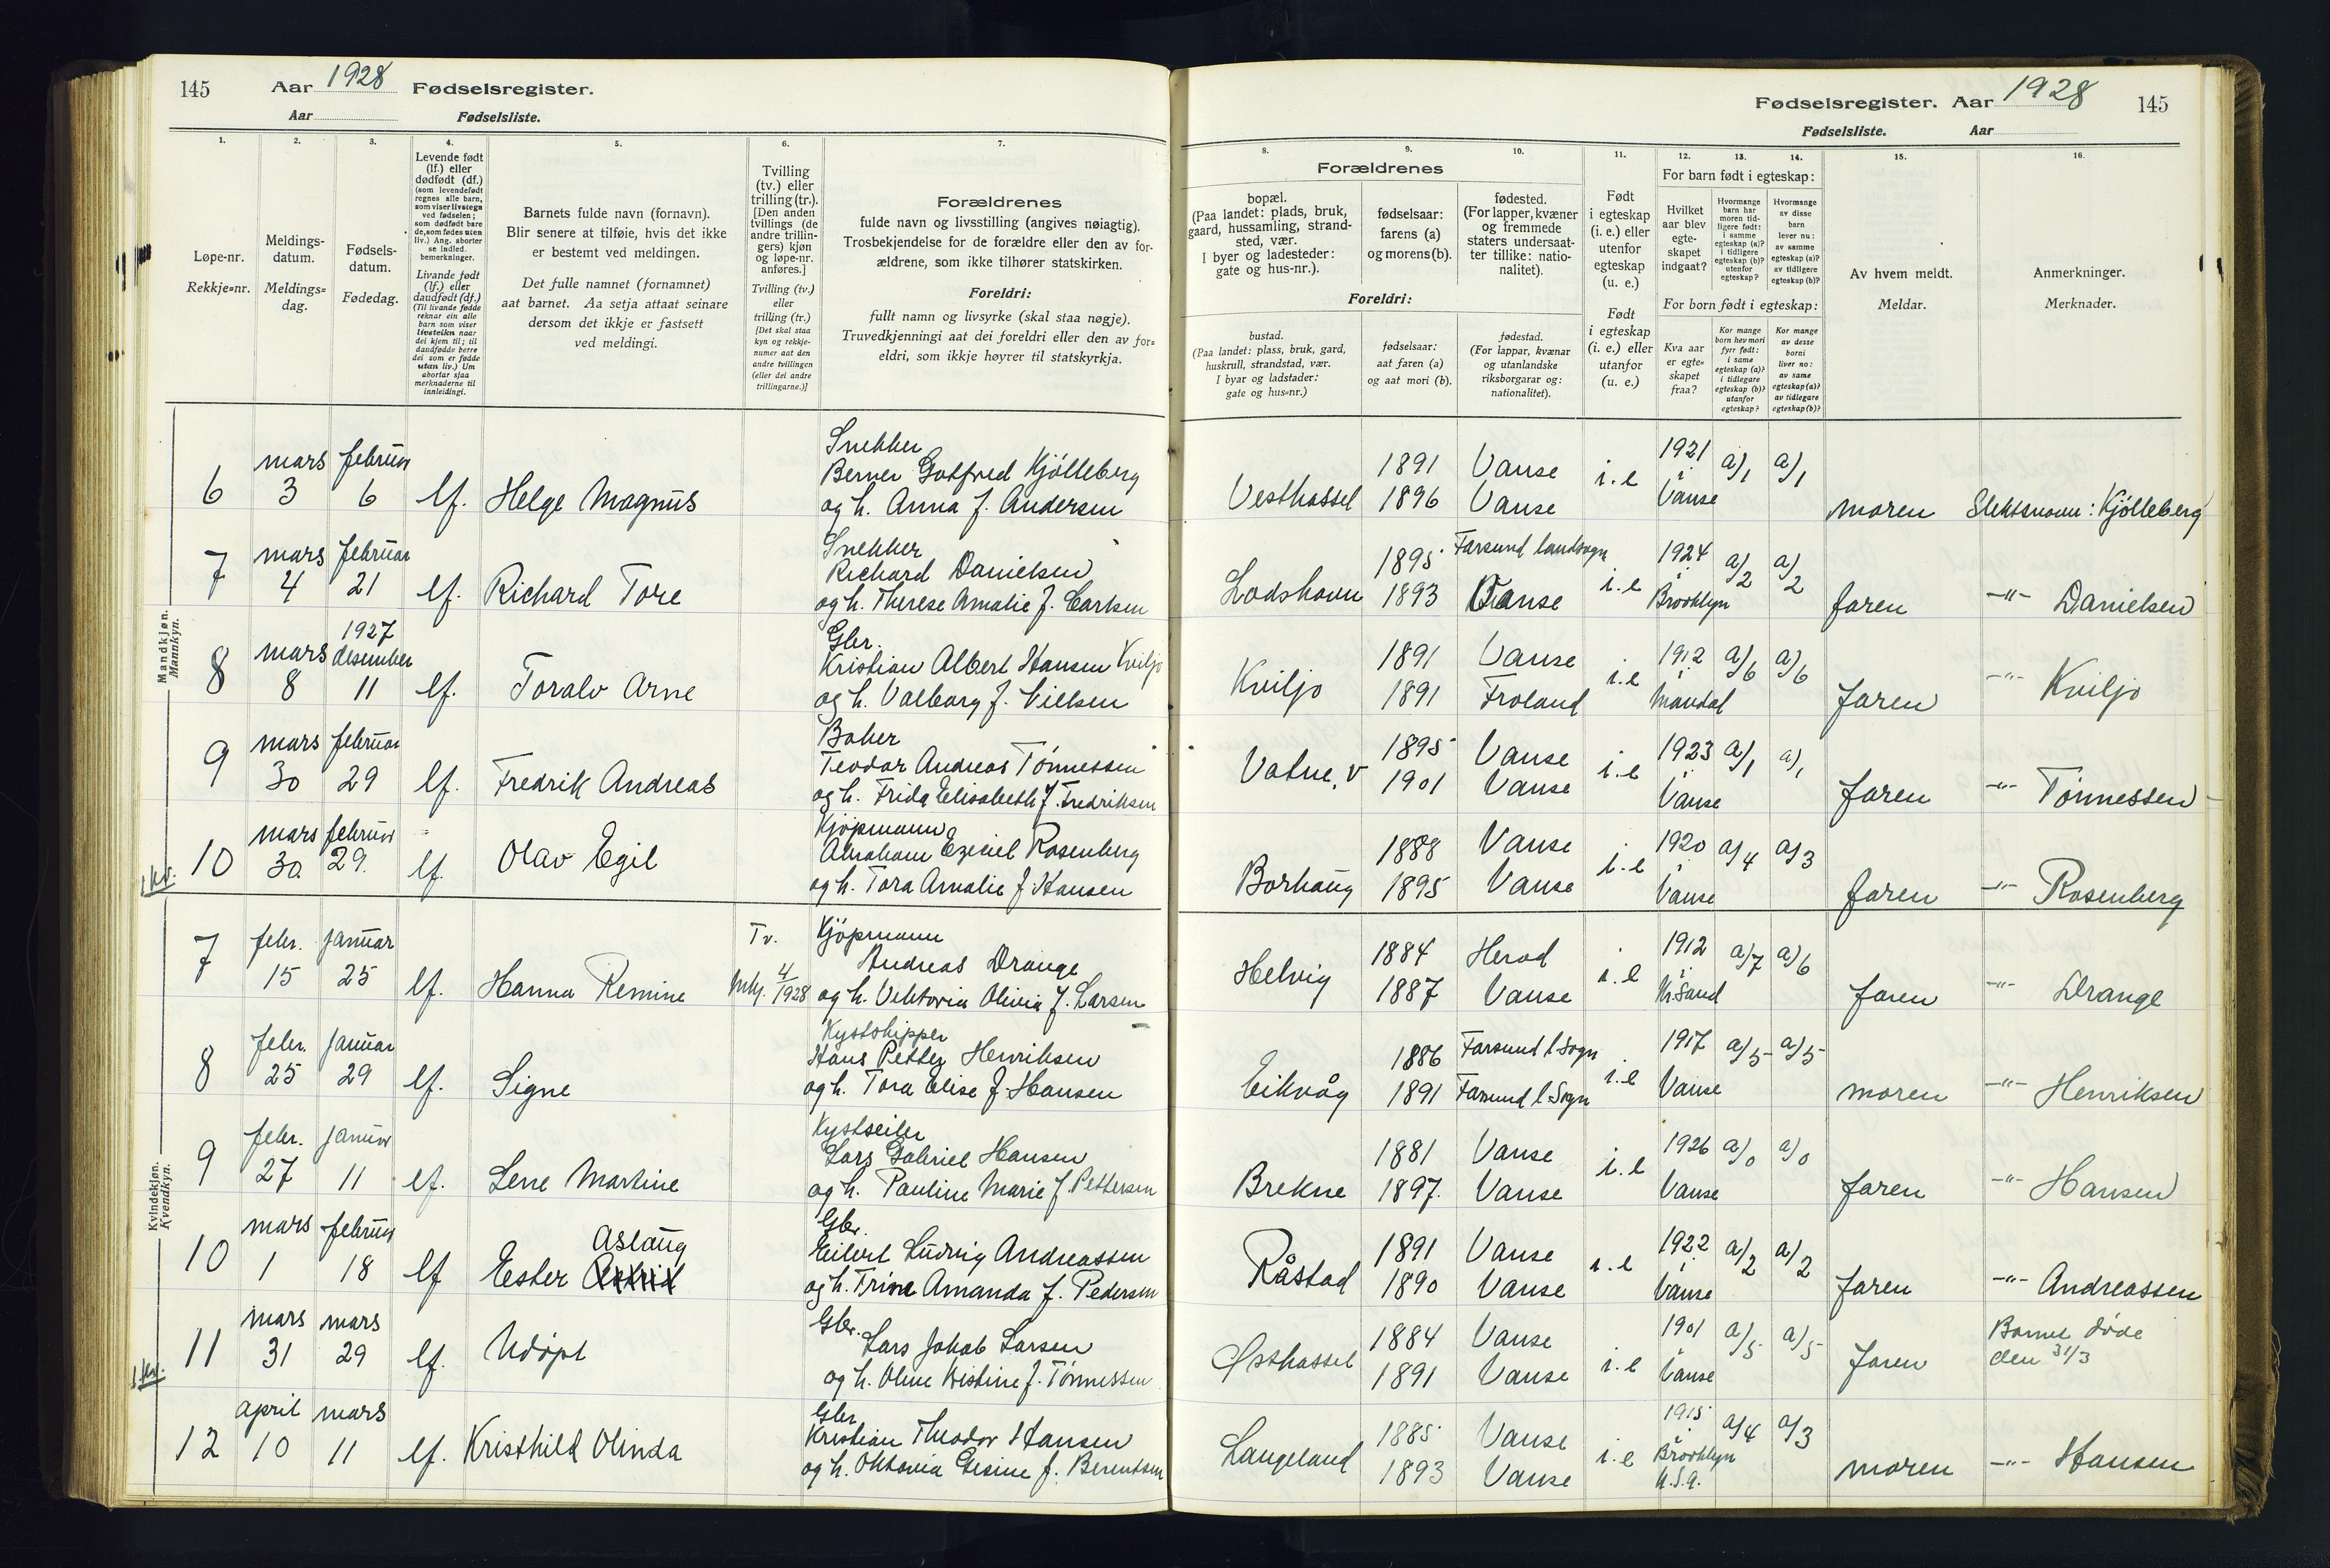 145 Aar 1928 Fødselsregister.
Aar Fødselsliste.
Fødselsregister. Aar 1928 145
Fødselsliste. Aar
1. 2. 3. 4. 5. 6. 7.
Løpe-nr.
Rekkje=nr.
Meldings-
datum.
Meldings=
dag.
Fødsels-
datum.
Fødedag.
Levende født
(lf.) eller
dødfødt (df.)
(som levendefødt
regnes alle barn,
som viser livstegn
ved fødselen;
som dødfødt bare
de, som fødes uten
liv.) Ang. aborter
se indled.
bemerkninger.
Livande født
(lf.) eller
daudfødt (df.)
(Til livande fødde
reknar ein alle
barn som viser
livsteikn naar
dei kjem til; til
daudfødde berre
dei som er fødde
utan liv.) Um
abortar sjaa
merknaderne til
innleidingi.
Barnets fulde navn (fornavn).
Blir senere at tilføie, hvis det ikke
er bestemt ved meldingen.
Det fulle namnet (fornamnet)
aat barnet. Aa setja attaat seinare
dersom det ikkje er fastsett
ved meldingi.
Tvilling
(tv.) eller
trilling (tr.).
[Den anden
tvillings (de
andre trillin-
gers) kjøn
og løpe-nr.
anføres.]
Tvilling (tv.)
eller
trilling (tr.)
[Det skal staa
kyn og rekkje-
numer aat den
andre tvillingen
(eller dei andre
trillingarne.)]
Forældrenes
fulde navn og livsstilling (angives nøiagtig).
Trosbekjendelse for de forældre eller den av for-
ældrene, som ikke tilhører statskirken.
Foreldri:
fullt namn og livsyrke (skal staa nøgje).
Truvedkjenningi aat dei foreldri eller den av for=
eldri, som ikkje høyrer til statskyrkja.
8. 9. 10. 11. 12. 13. 14. 15. 16.
Forældrenes
bopæl.
(Paa landet: plads, bruk,
gaard, hussamling, strand-
sted, vær.
I byer og ladesteder:
gate og hus-nr.).
fødselsaar:
farens (a)
og morens (b).
fødested.
(For lapper, kvæner
og fremmede
staters undersaat-
ter tillike: natio-
nalitet).
Foreldri:
bustad.
(Paa landet: plass, bruk, gard,
huskrull, strandstad, vær.
I byar og ladstader:
gate og hus=nr.)
fødselsaar:
aat faren (a)
og aat mori (b).
fødestad.
(For lappar, kvænar
og utanlandske
riksborgarar og:
nationalitet).
Født
i egteskap
(i. e.) eller
utenfor
egteskap
(u. e.)
Født
i egteskap
(i. e.) eller
utanfor
(u. e.)
For barn født i egteskap:
Hvilket
aar blev
egte-
skapet
indgaat?
Hvormange
barn har
moren tid-
ligere født:
i samme
egteskap (a)?
i tidligere
egteskap (b)?
utenfor
egteskap?
Hvormange
av disse
barn
lever nu:
av samme
egteskap (a)?
av tidligere
egteskap (b)?
For born født i egteskap:
Kva aar
er egte=
skapet
fraa?
Kor mange
born hev mori
fyrr født:
i same
egteskap (a)?
i tidlegare
egteskap (b)?
utanfor
egteskap?
Kor mange
av desse
borni
liver no:
av same
egteskap (a)?
av tidlegare
egteskap (b)?
Av hvem meldt.
Meldar.
Anmerkninger.
Merknader.
Mandkjøn.
Mannkyn.
Snekker
6 mars 3 februar 6 lf. Helge Magnus Berner Gotfred Kjölleberg
og h. Anna f. Andersen
Vesthassel 1891 Vanse i.e 1921 a/1 a/1
1896 Vanse i Vanse moren Slektsnavn: Kjölleberg
Snekker
7 mars 4 februar 21 lf. Richard Tore Richard Danielsen
og h. Therese Amalie f. Carlsen
Lodshavn 1895 Farsund landsogn i.e 1924 a/2 a/2
1893 Vanse i Brooklyn faren -"- Danielsen
1927
Gbr.
8 mars 8 desember 11 lf. Toralv Arne Kristian Albert Hansen Kviljo
og h. Valborg f. Nielsen
Kviljo 1891 Vanse i.e 1912 a/6 a/6
1891 Froland i Mandal faren -"- Kviljo
Baker
9 mars 30 februar 29 lf. Fredrik Andreas Teodor Andreas Tönnessen
og h. Frida Elisabeth f. Fredriksen
Vatne, v 1895 Vanse i.e 1923 a/1 a/1
1901 Vanse i Vanse faren -"- Tönnessen
Kjöpmann
10 mars 30. februar 29. lf. Olav Egil Abraham Eziciel Rosenberg
og h. Tora Amalie f. Hansen
1 kv.
Borhaug 1888 Vanse i.e 1920 a/4 a/3
1895 Vanse i Vanse faren -"- Rosenberg
Kvindekjøn.
Kvendkyn.
Tv. Kjöpmann
7 febr. 15 januar 25 lf. Hanna Remine 4/1928 Andreas Drange
og h. Vektoria Olivia f. Larsen
Helvig 1884 Herad i.e 1912 a/7 a/6
1887 Vanse i Kr.Sand faren -"- Drange
Kystskipper
8 febr. 25 januar 29 lf. Signe Hans Petter Henriksen
og h. Tora Elise f. Hansen
Eikvåg 1886 Farsund l. Sogn i.e 1917 a/5 a/5
1891 Farsund l. Sogn Vanse moren -"- Henriksen
Kystseiler
9 febr. 27 januar 11 lf. Lene Martine Lars Gabriel Hansen
og h. Pauline Marie f. Pettersen
Brekne 1881 Vanse i.e 1926 a/0 a/0
1897. Vanse Vanse faren -"- Hansen
Gbr.
10 mars 1 februar 18 lf Ester Aslaug Eilert Ludvig Andreassen
og h. Trine Amanda f. Pedersen
Råstad 1891 Vanse i.e 1922 a/2 a/2
1890 Vanse i Vanse faren -"- Andreassen
Gbr.
11 mars 31 mars 29 lf. Udöpt Lars Jakob Larsen
og h. Oline Kristine f. Tönnessen
1 kv.
Östhassel 1884 Vanse i.e 1901 a/5 a/5
1891 Vanse i Vanse faren Barnet döde
den 31/3
Gbr
12 april 10 mars 11 lf. Kristhild Olinda Kristian Theodor Hansen
og h. Oktavia Gesine f. Berentsen
Langeland 1885 Vanse i.e 1915 a/4 a/3
1893 Vanse i Brooklyn
U.S.A. moren -"- Hansen